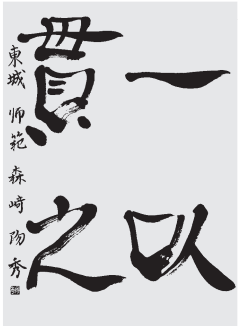 一以
貫之
東城 師範 森﨑陽秀